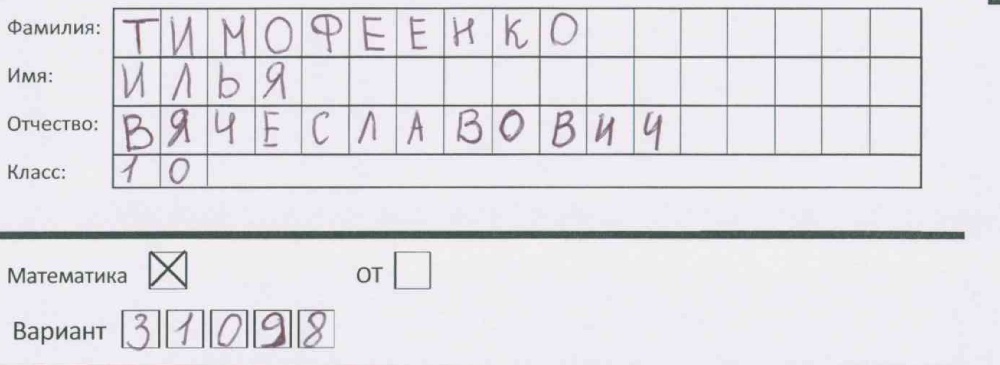 Фамилия: ТИМОФЕЕНКО
Имя: ИЛЬЯ
Отчество: ВЯЧЕСЛАВОВИЧ
Класс: 10
Математика ОТ
Вариант 31098